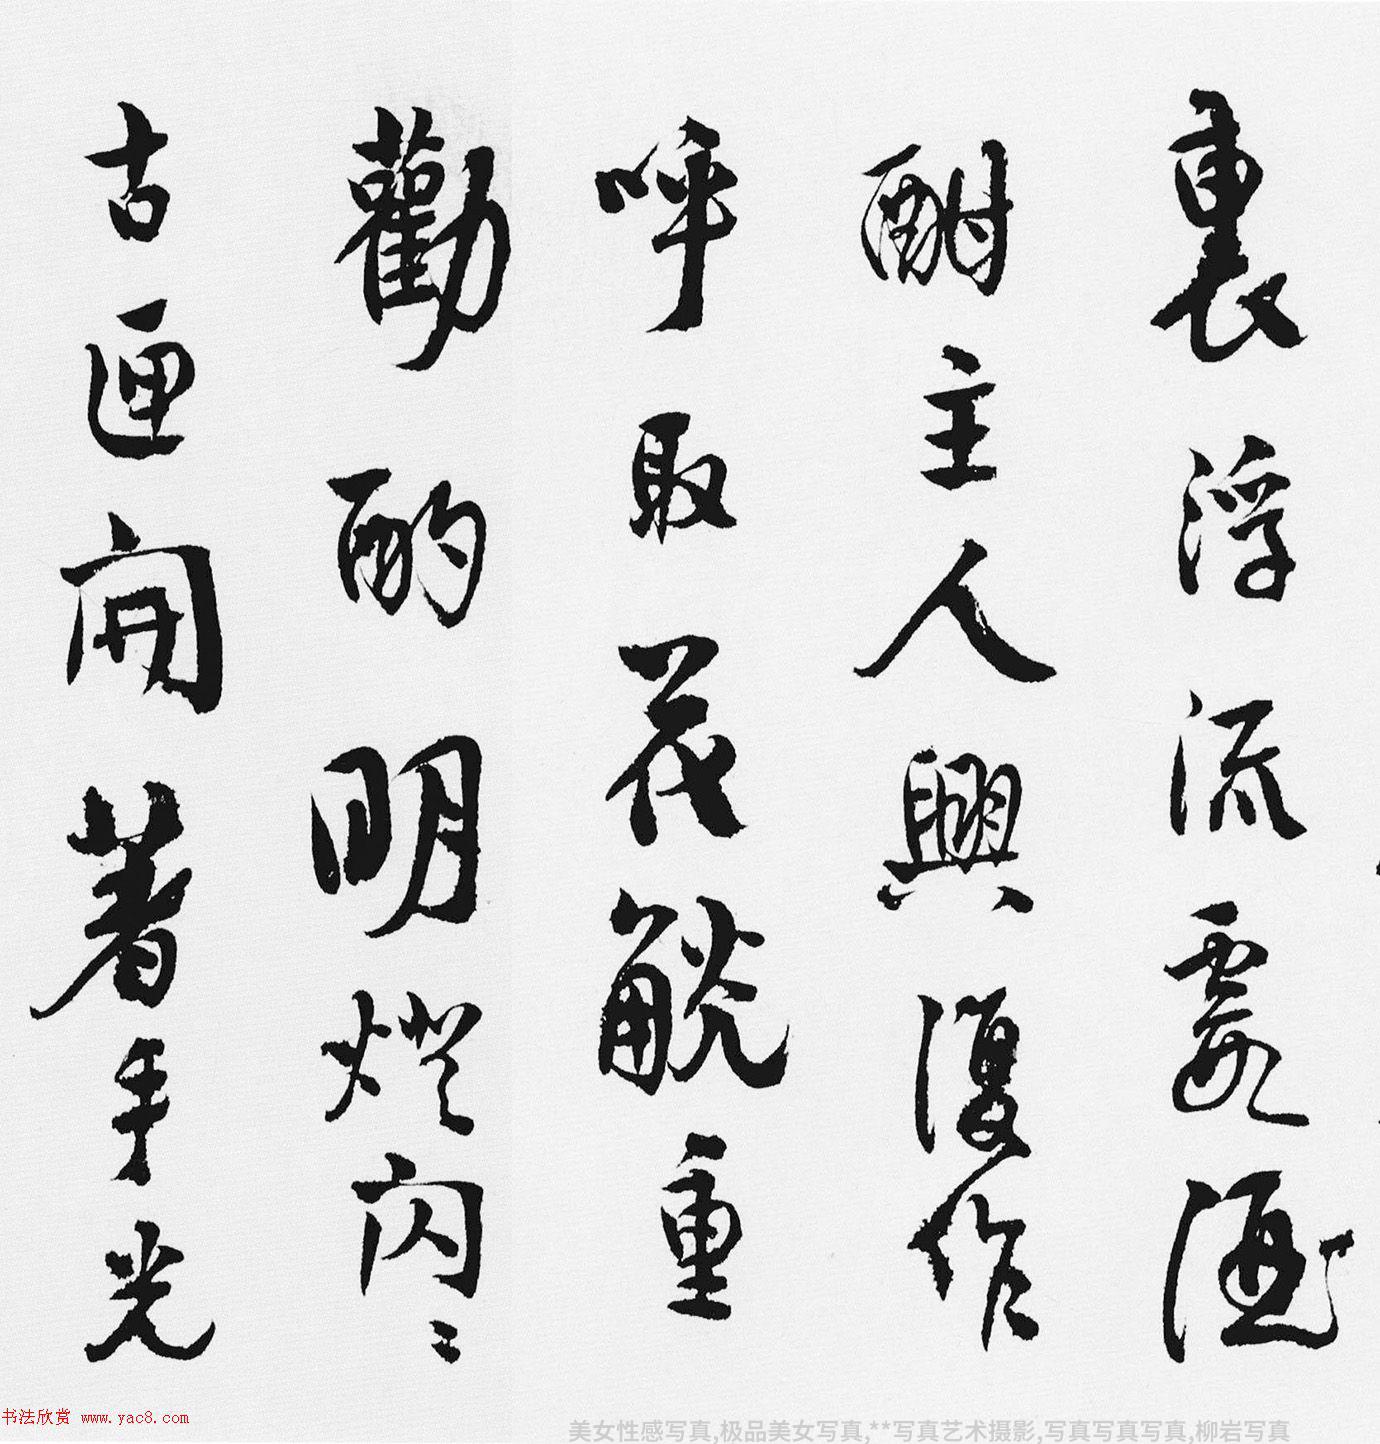 裏浮流霞酒
酣主人興復作
呼取花觥重
勸酌明燈閃〻
古匣開著手光
书法欣赏 www.yac8.com
美女性感写真,极品美女写真,**写真艺术摄影,写真写真写真,柳岩写真